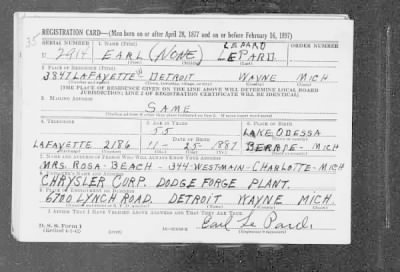 35
REGISTRATION CARD—(Men born on or after April 28, 1877 and on or before February 16, 1897)
SERIAL NUMBER 1. NAME (Print) LEPARD ORDER NUMBER
U 2914 EARL (NONE) LEPARD.
(First) (Middle) (Last)
2. PLACE OF RESIDENCE (Print)
3847 LAFAYETTE DETROIT WAYNE MICH
[THE PLACE OF RESIDENCE GIVEN ON THE LINE ABOVE WILL DETERMINE LOCAL BOARD
JURISDICTION; LINE 2 OF REGISTRATION CERTIFICATE WILL BE IDENTICAL]
3. MAILING ADDRESS
SAME
4. TELEPHONE 5. AGE IN YEARS 6. PLACE OF BIRTH
55 LAKE ODESSA
DATE OF BIRTH
LAFAYETTE 2186 11-25-1887 MICH
7. NAME AND ADDRESS OF PERSON WHO WILL ALWAYS KNOW YOUR ADDRESS
MRS. ROSA-BEACH-344-WEST-MAIN-CHARLOTTE-MICH
8. EMPLOYER'S NAME AND ADDRESS
CHRYSLER CORP. DODGE FORGE PLANT.
9. PLACE OF EMPLOYMENT OR BUSINESS
6700 LYNCH ROAD. DETROIT WAYNE MICH.
I AFFIRM THAT I HAVE VERIFIED ABOVE ANSWERS AND THAT THEY ARE TRUE.
D. S. S. Form 1
(Revised 4-1-42) Earl Le Pard.
(Registrant's signature)